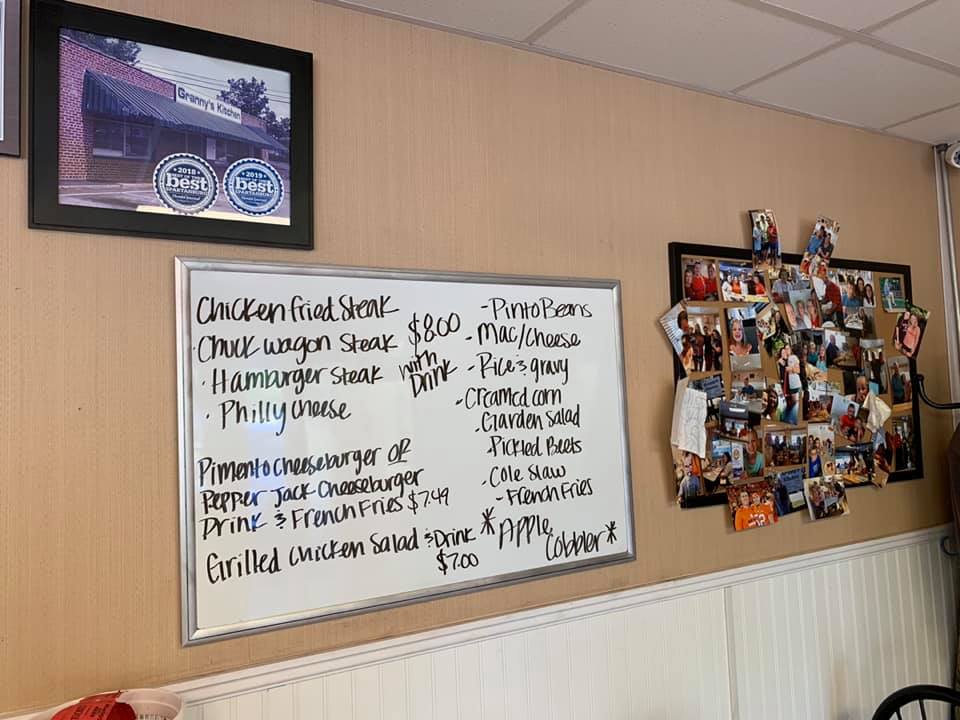 Granny's Kitchen
2018
best
SPARTANBURG
2019
best
SPARTANBURG
Chicken fried Steak
Chuck wagon Steak
· Hamburger Steak
· Philly cheese
$8.00
with
Drink
Pimento cheeseburger or
Pepper Jack Cheeseburger
Drink & French Fries $7.49
Grilled Chicken Salad & Drink
$7.00
- Pinto Beans
- Mac/Cheese
- Rice & gravy
- Creamed corn
- Garden Salad
- Pickled Beets
- Cole Slaw
- French Fries
*Apple
Cobbler*